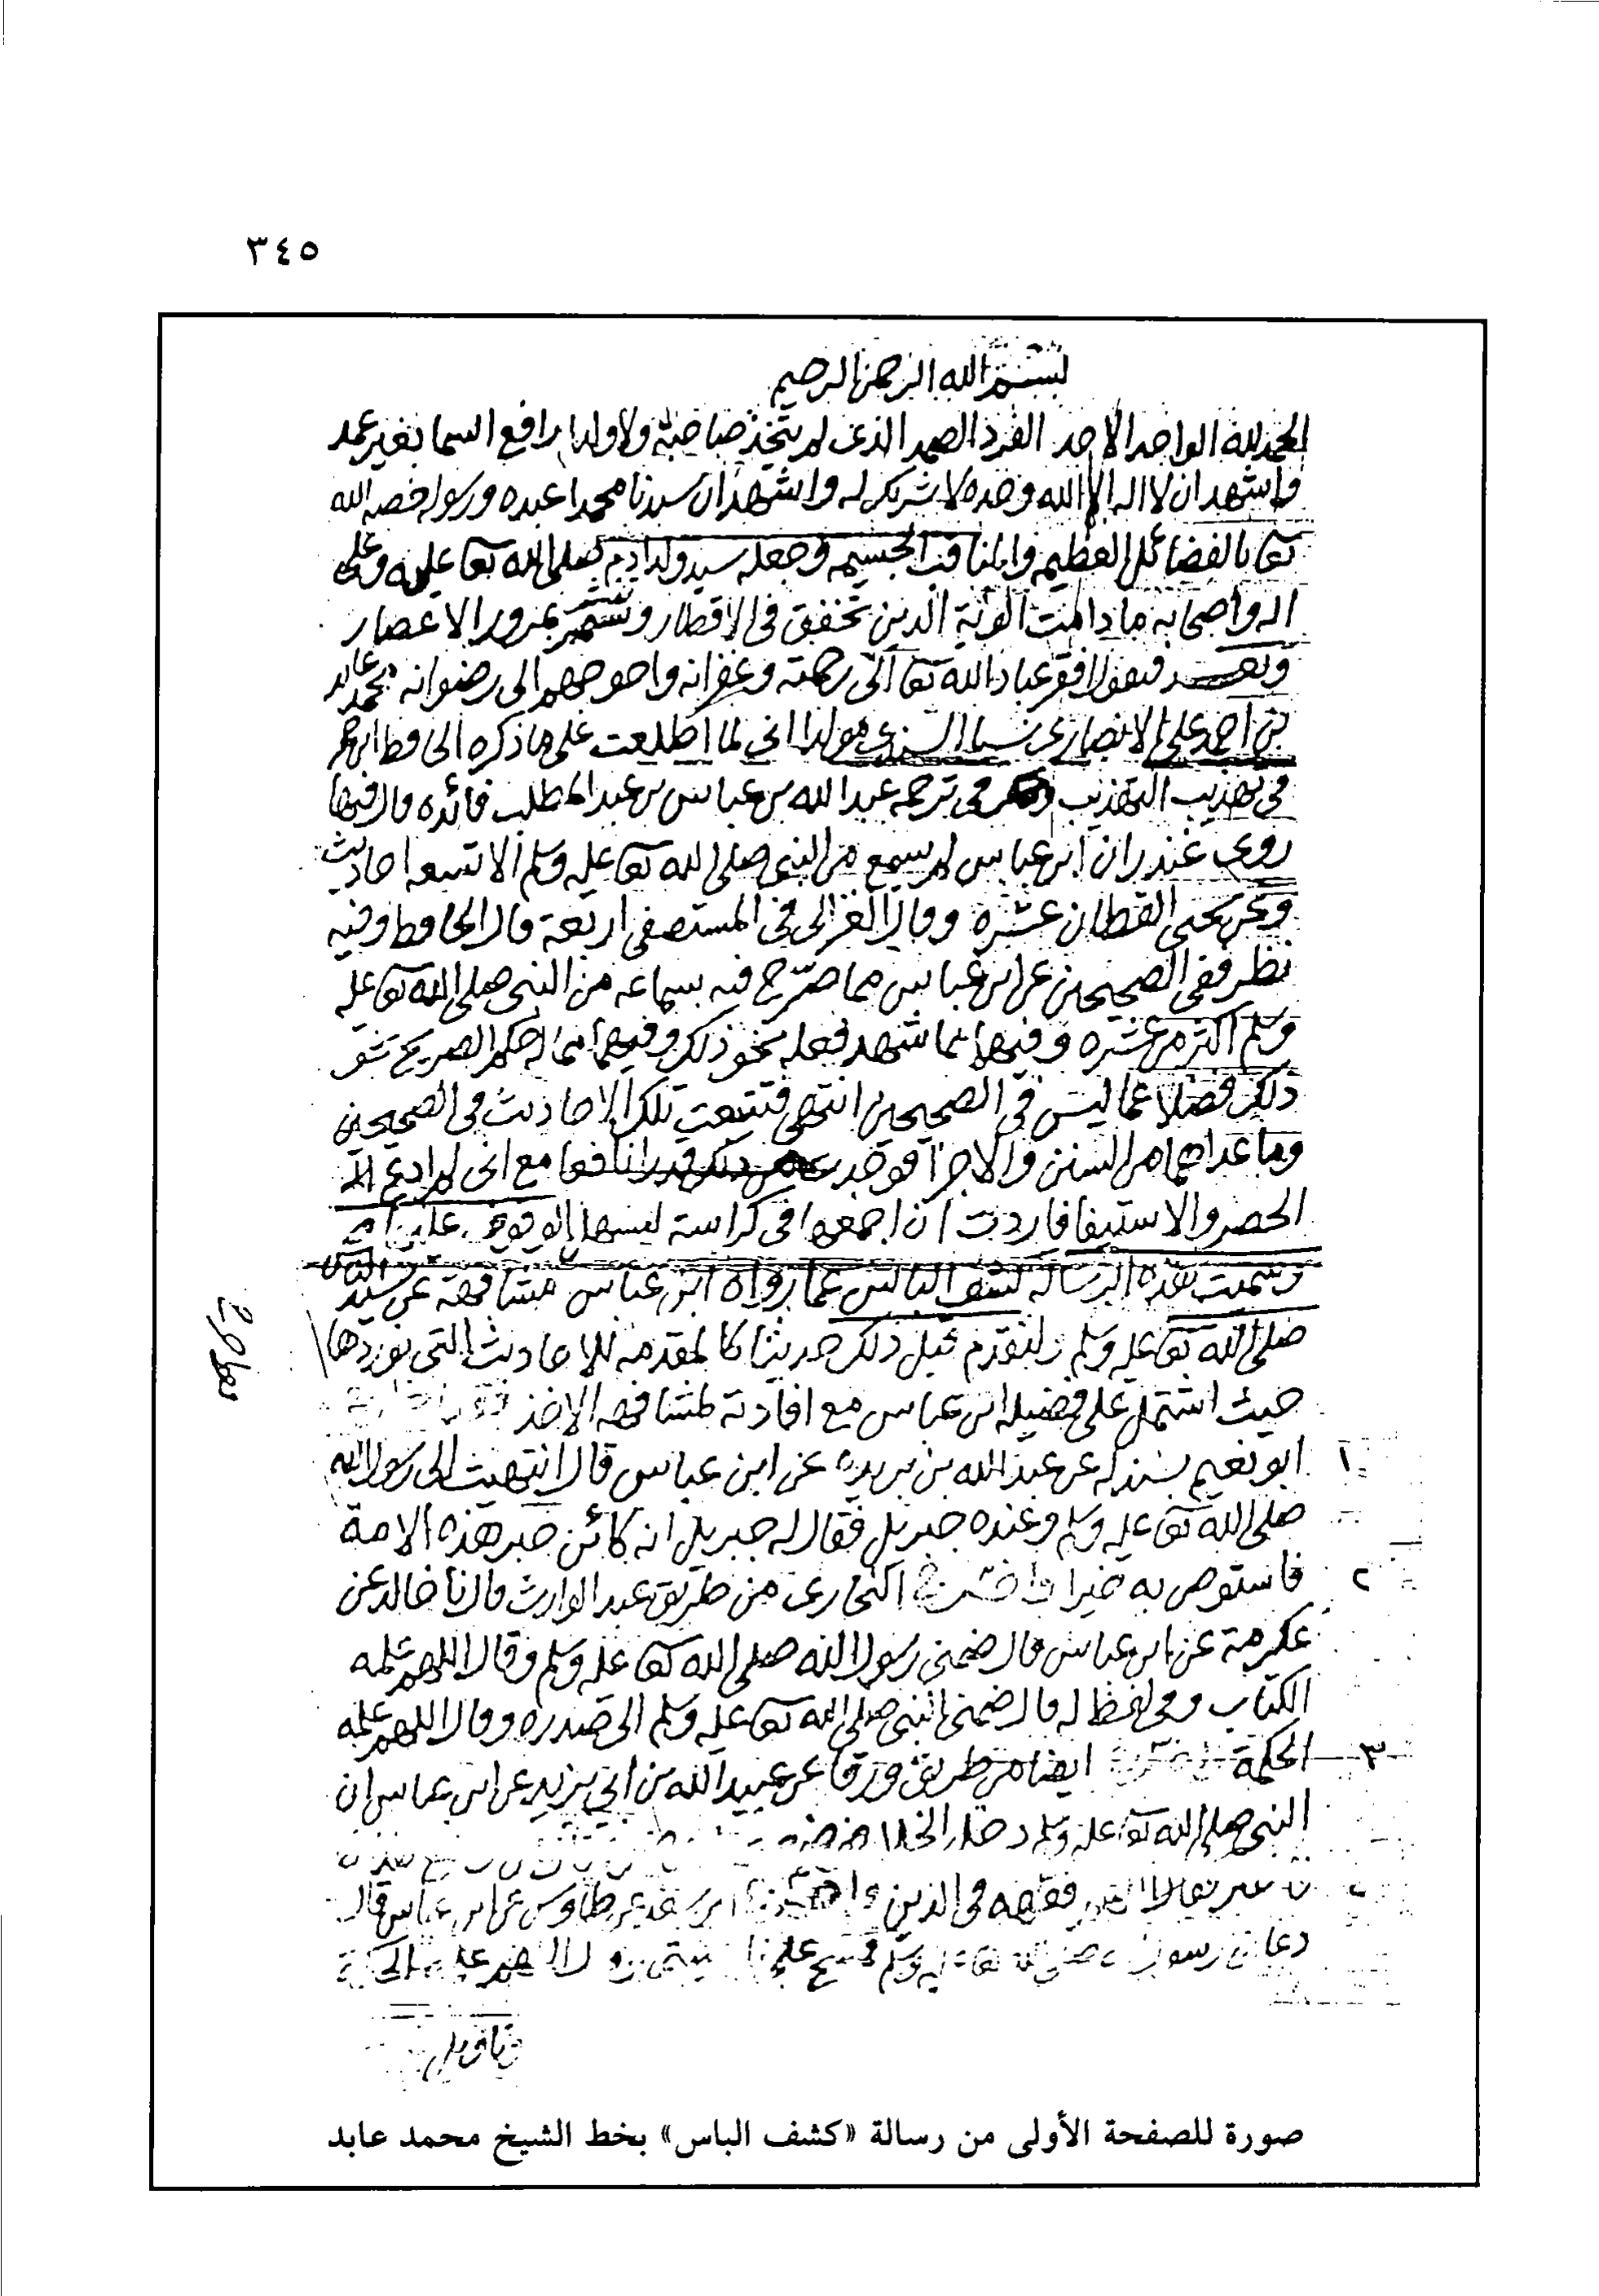 ٣٤٥
بسم الله الرحمن الرحيم
الحمد لله الواحد الاحد الفرد الصمد الذي لم يتخذ صاحبة ولا ولدا رافع السما بغير عمد
واشهد ان لا اله الا الله وحده لا شريك له واشهد ان سيدنا محمدا عبده ورسوله خصه الله
تعا بالفضائل العظيمه والمناقب الجسيمه وجعله سيد ولد ادم صلى الله تعا عليه وعلى
اله واصحابه ما دامت الوية الدين تخفق في الاقطار وتستمر بمرور الاعصار
وبعد فيقول افقر عباد الله تعا الى رحمته وغفرانه واحوجهم الى رضوانه محمد عابد
بن احمد على الانصاري نسبا السندي مولدا اني لما اطلعت على ما ذكره الحافظ ابن حجر
في تهذيب التهذيب في ترجمة عبد الله بن عباس بن عبد المطلب فائده قال فيها
روى غندر ان ابن عباس لم يسمع من النبي صلى الله تعا عليه وسلم الا تسعه احاديث
وعن يحيى القطان عشره وقال الغزالي في المستصفى اربعة قال الحافظ وفيه
نظر ففي الصحيحين عن ابن عباس مما صرح فيه بسماعه من النبي صلى الله تعا عليه
وسلم اكثر من عشره وفيهما مما شهد فعله نحو ذلك وفيهما مما له حكم الصريح نحو
ذلك فضلا عما ليس في الصحيحين انتهى فتتبعت تلك الاحاديث في الصحيحين
وما عداهما من السنن والاجزا فوجدت من ذلك قدرا نافعا مع اني لم ادع
الحصر والاستيفا فاردت ان اجمعها في كراسة ليسهل الوقوف عليها
وسميت هذه الرساله كشف الباس عما رواه ابن عباس مشافهة عن سيد الناس
صلى الله تعا عليه وسلم ولنقدم قبل ذلك حديثا كالمقدمة للاحاديث التي نوردها
حيث اشتمل على فضيله ابن عباس مع افادته لمشافهه الاخذ
١ ابو نعيم بسنده عن عبد الله بن بريده عن ابن عباس قال انتهيت الى رسول الله
صلى الله تعا عليه وسلم وعنده جبريل فقال له جبريل انه كائن حبر هذه الامة
٢ فاستوص به خيرا واخرج البخاري من طريق عبد الوارث قال نا خالد عن
عكرمة عن ابن عباس قال ضمني رسول الله صلى الله تعا عليه وسلم وقال اللهم علمه
الكتاب وفي لفظ له قال ضمني النبي صلى الله تعا عليه وسلم الى صدره وقال اللهم علمه
٣ الحكمة ايضا من طريق ورقا عن عبيد الله بن ابي يزيد عن ابن عباس ان
النبي صلى الله تعا عليه وسلم دخل الخلا
فقال اللهم فقهه في الدين عن طاوس عن ابن عباس قال
دعاني رسول الله صلى الله تعا عليه وسلم فمسح على ناصيتي وقال اللهم علمه الحكمة
وتاويل
صورة للصفحة الأولى من رسالة «كشف الباس» بخط الشيخ محمد عابد